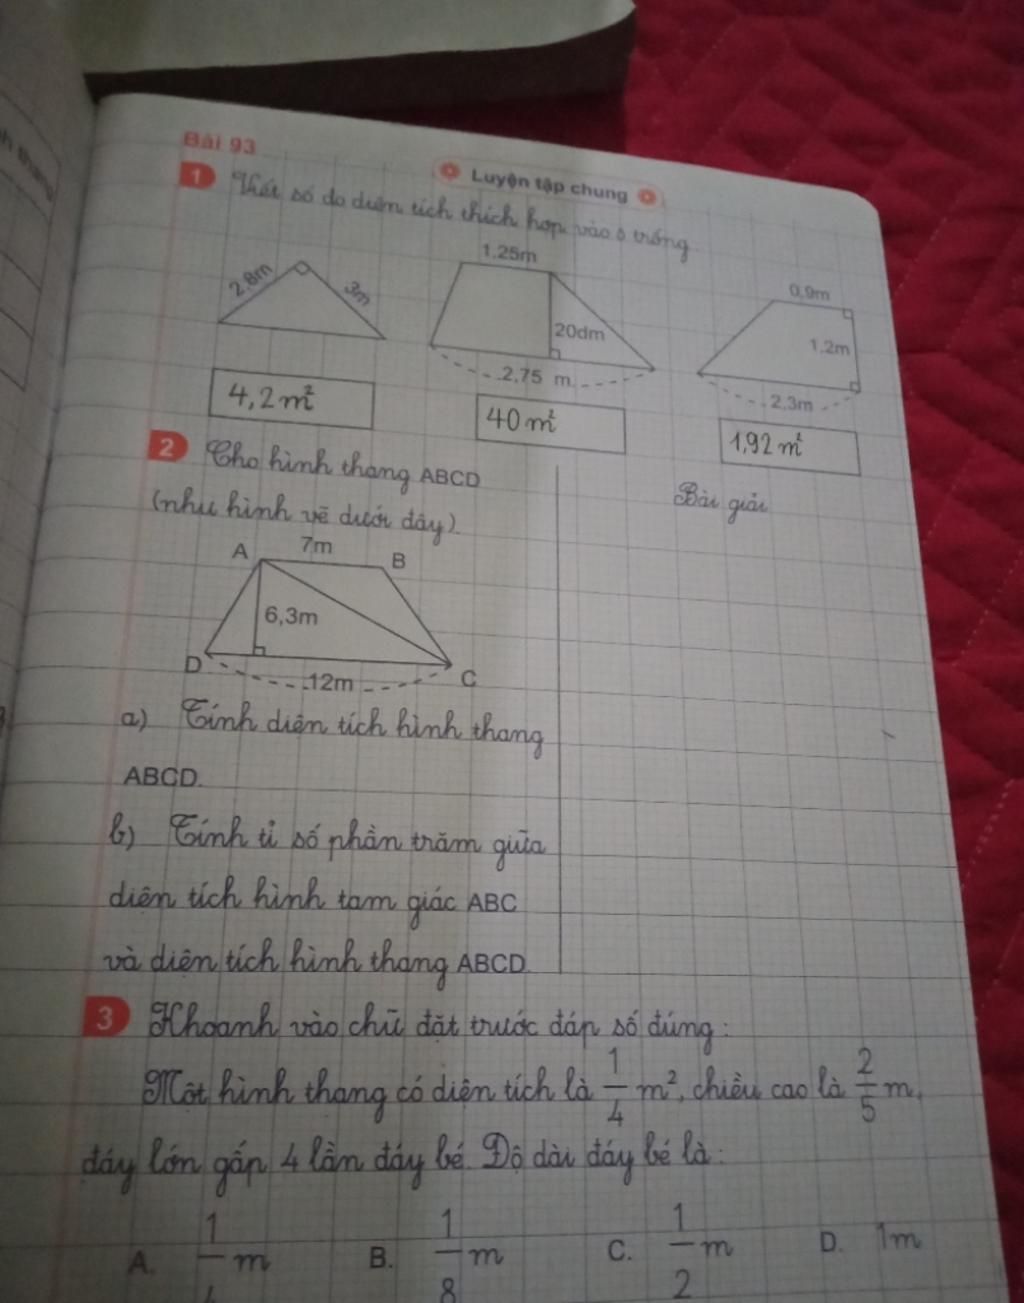 Bài 93
Luyện tập chung
1 Viết số đo diện tích thích hợp vào ô trống
2,8m 3m
1,25m
20dm
2,75 m
0,9m
1,2m
2,3m
4,2 m²
40 m²
1,92 m²
2 Cho hình thang ABCD
(như hình vẽ dưới đây).
Bài giải
A 7m B
6,3m
D 12m C
a) Tính diện tích hình thang
ABCD.
b) Tính tỉ số phần trăm giữa
diện tích hình tam giác ABC
và diện tích hình thang ABCD.
3 Khoanh vào chữ đặt trước đáp số đúng:
Một hình thang có diện tích là 1/4 m², chiều cao là 2/5 m,
đáy lớn gấp 4 lần đáy bé. Độ dài đáy bé là:
A. 1/4 m B. 1/8 m C. 1/2 m D. 1m